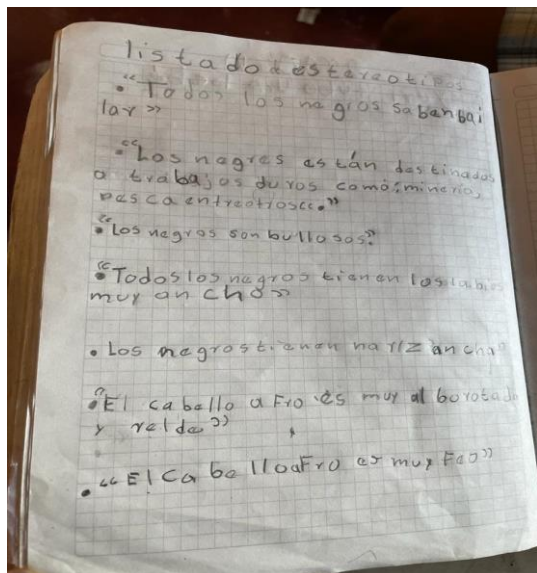 listado estereotipos
• "Todos los negros saben bai
lar"
• "Los negros están destinados
a trabajos duros como: minería,
pesca entre otros."
• "Los negros son bullosos."
• "Todos los negros tienen los labios
muy ancho"
• Los negros tienen nariz ancha
• "El cabello afro es muy alborotado
y relde"
• "El Cabello afro es muy Feo"